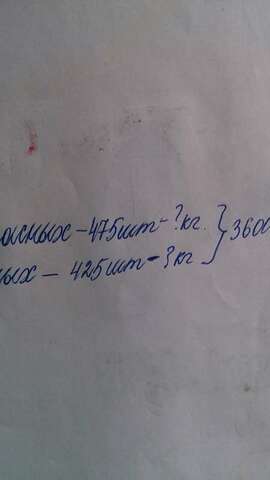 асных - 475шт - ? кг. } 3600
ных - 425шт - ? кг